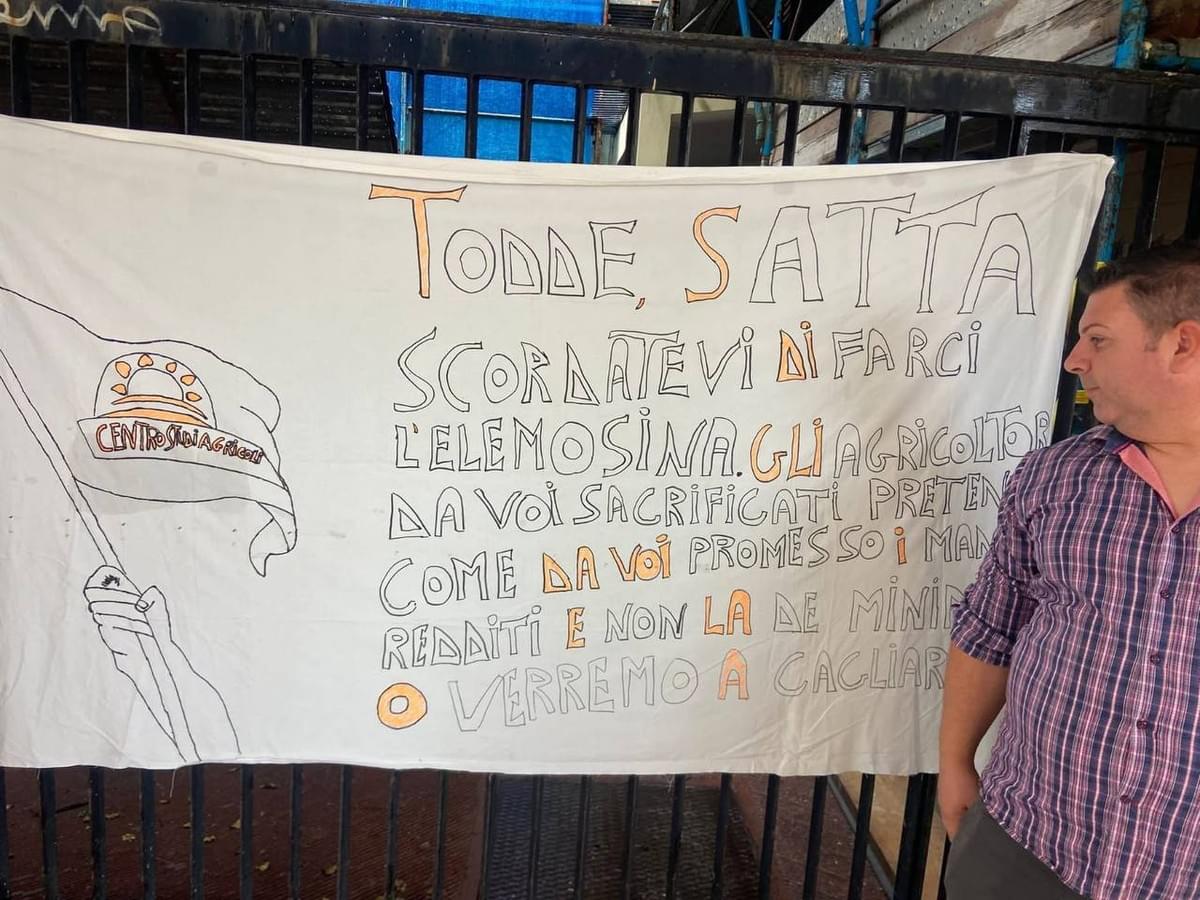 TODDE, SATTA
SCORDATEVI DI FARCI
L'ELEMOSINA. GLI AGRICOLTOR
DA VOI SACRIFICATI PRETEN
COME DA VOI PROMESSO I MAN
REDDITI E NON LA DE MINIM
O VERREMO A CAGLIAR
CENTRO STUDI AGRICOLI